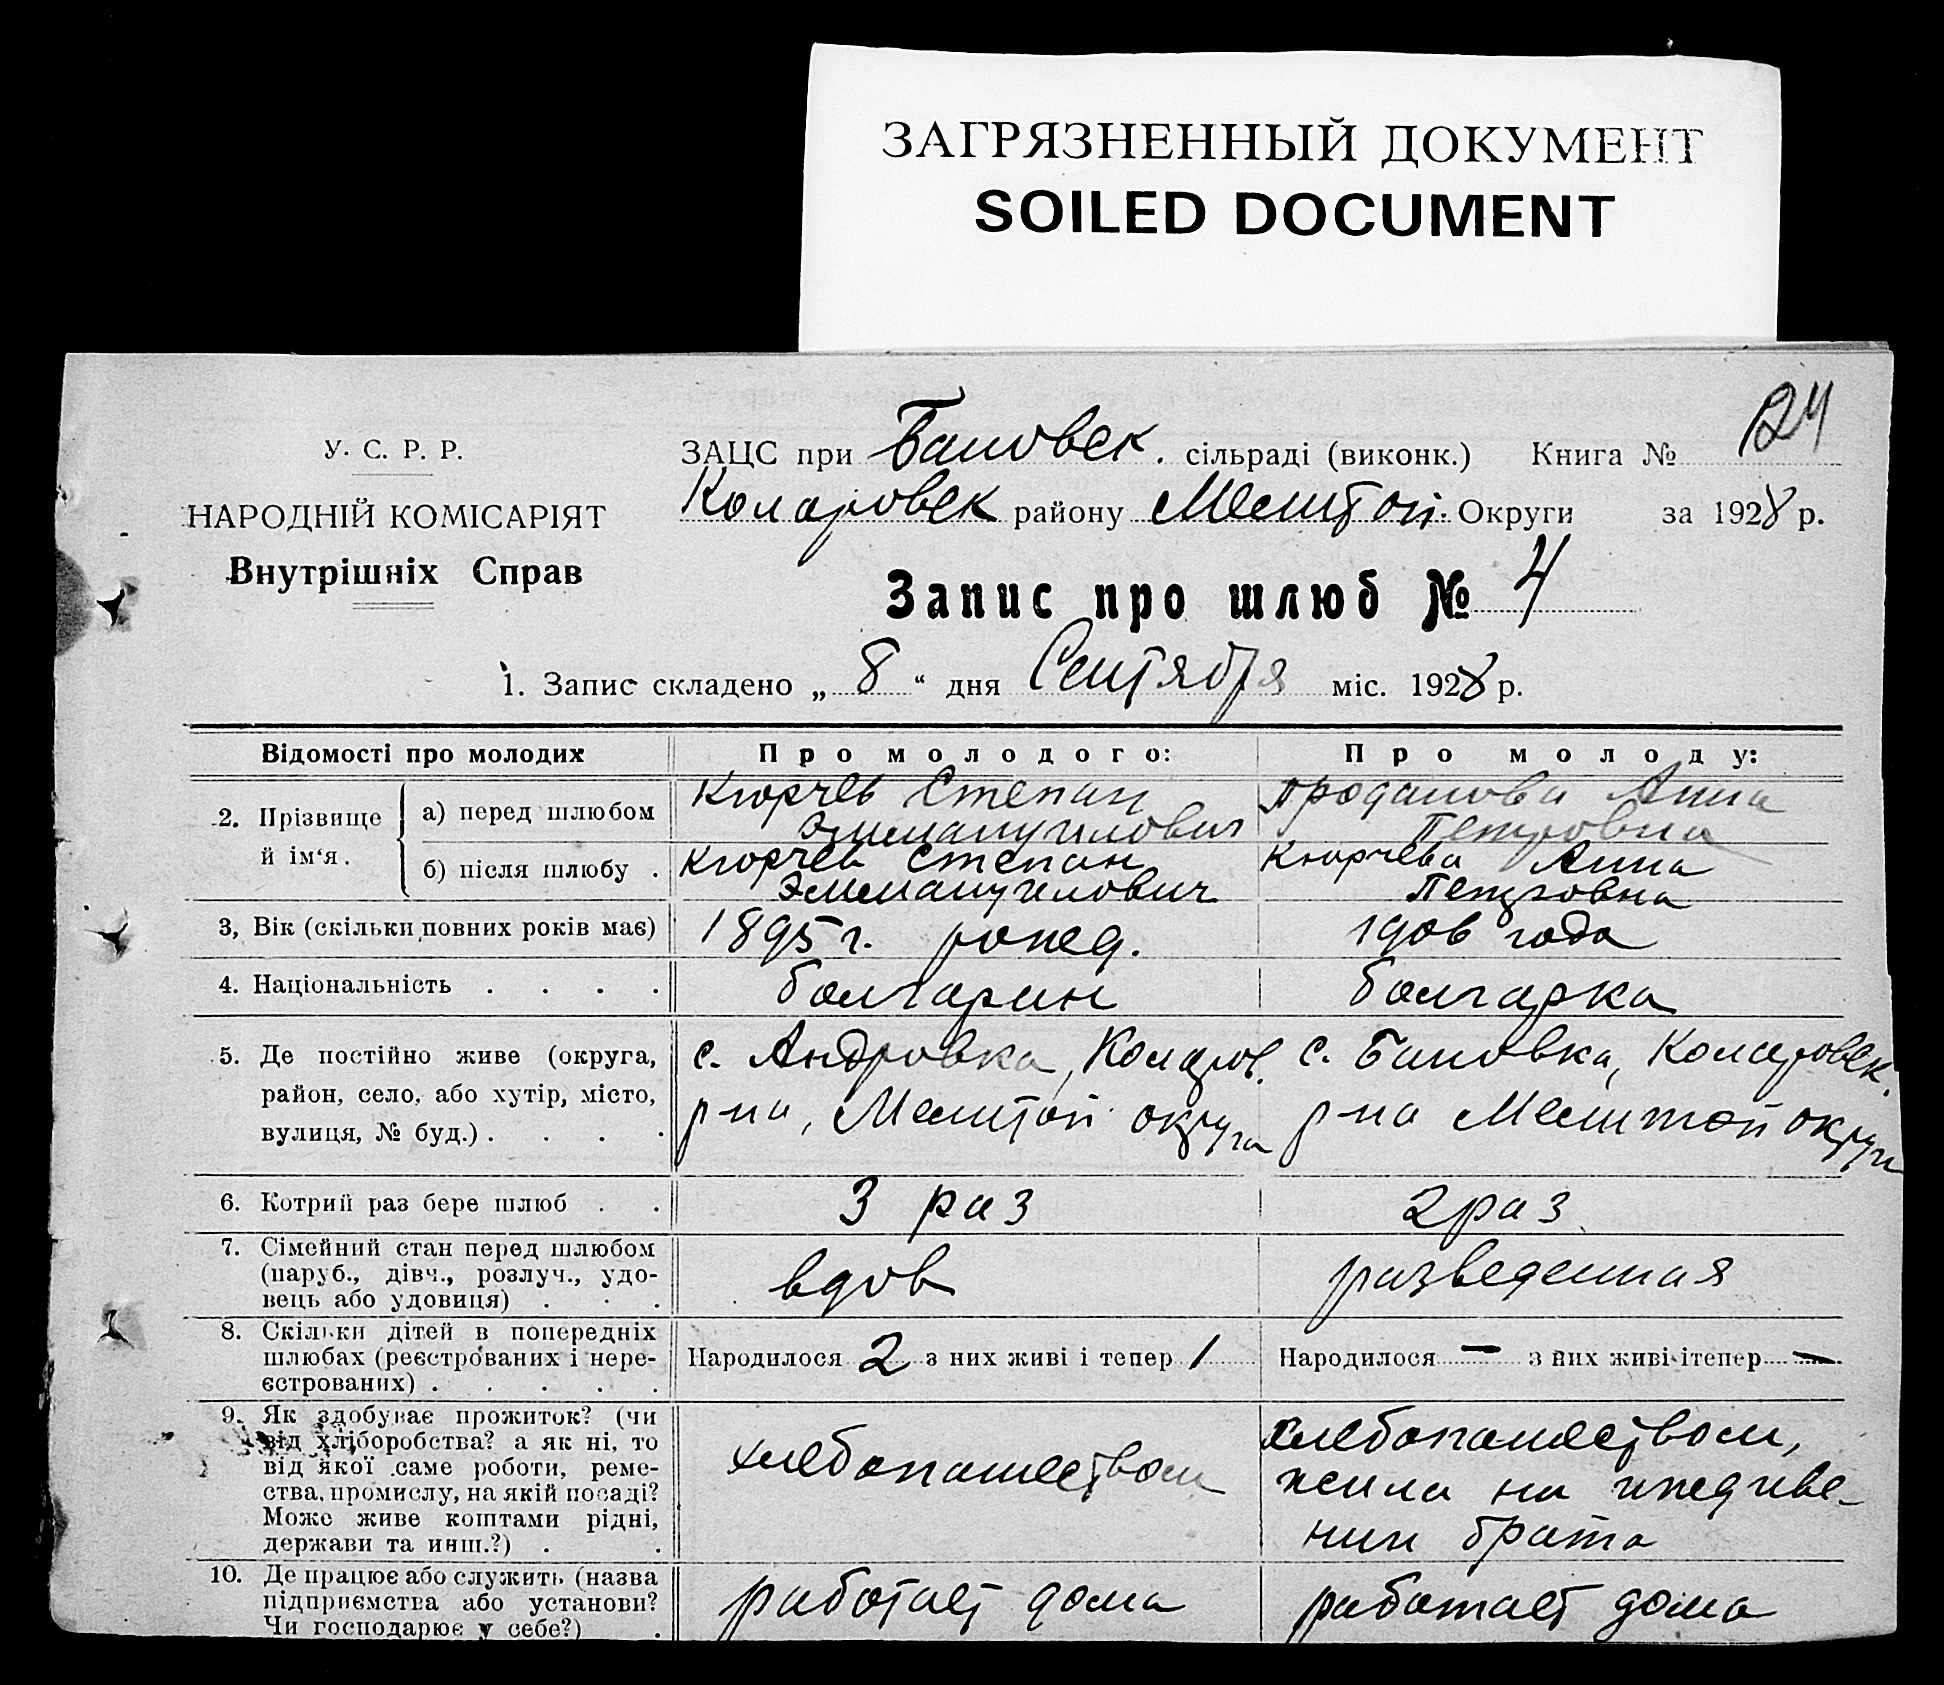 ЗАГРЯЗНЕННЫЙ ДОКУМЕНТ
SOILED DOCUMENT
124
У. С. Р. Р.
НАРОДНІЙ КОМІСАРІЯТ
Внутрішніх Справ
ЗАЦС при Бановск. сільраді (виконк.) Книга №
Коларовск району Мелитоп. Округи за 1928 р.
Запис про шлюб № 4
1. Запис складено „ 8 “ дня Сентября міс. 1928 р.
Відомості про молодих
Про молодого:
Про молоду:
2. Прізвище й ім‘я.
а) перед шлюбом
Кюрчев Степан
Эммануилович
Проданова Анна
Петровна
б) після шлюбу .
Кюрчев Степан
Эммануилович
Кюрчева Анна
Петровна
3, Вік (скільки повних років має)
1895 г. рожд.
1906 года
4. Національність . . . .
болгарин
болгарка
5. Де постійно живе (округа,
район, село, або хутір, місто,
вулиця, № буд.) . . . .
с. Андровка, Коларов.
р-на, Мелитоп округа
с. Бановка, Коларовск.
р-на Мелитоп округи
6. Котрий раз бере шлюб . .
3 раз
2 раз
7. Сімейний стан перед шлюбом
(паруб., дівч., розлуч., удо-
вець або удовиця) . . .
вдов
разведенная
8. Скільки дітей в попередніх
шлюбах (реєстрованих і нере-
єстрованих) . . . . .
Народилося 2 з них живі і тепер 1
Народилося — з них живі ітепер —
9. Як здобуває прожиток? (чи
від хліборобства? а як ні, то
від якої саме роботи, реме-
ства, промислу, на якій посаді?
Може живе коштами рідні,
держави та инш.?) . .
хлебопашеством
хлебопашеством,
жила на иждиве-
нии брата
10. Де працює або служить (назва
підприємства або установи?
Чи господарює у себе?) .
работает дома
работает дома